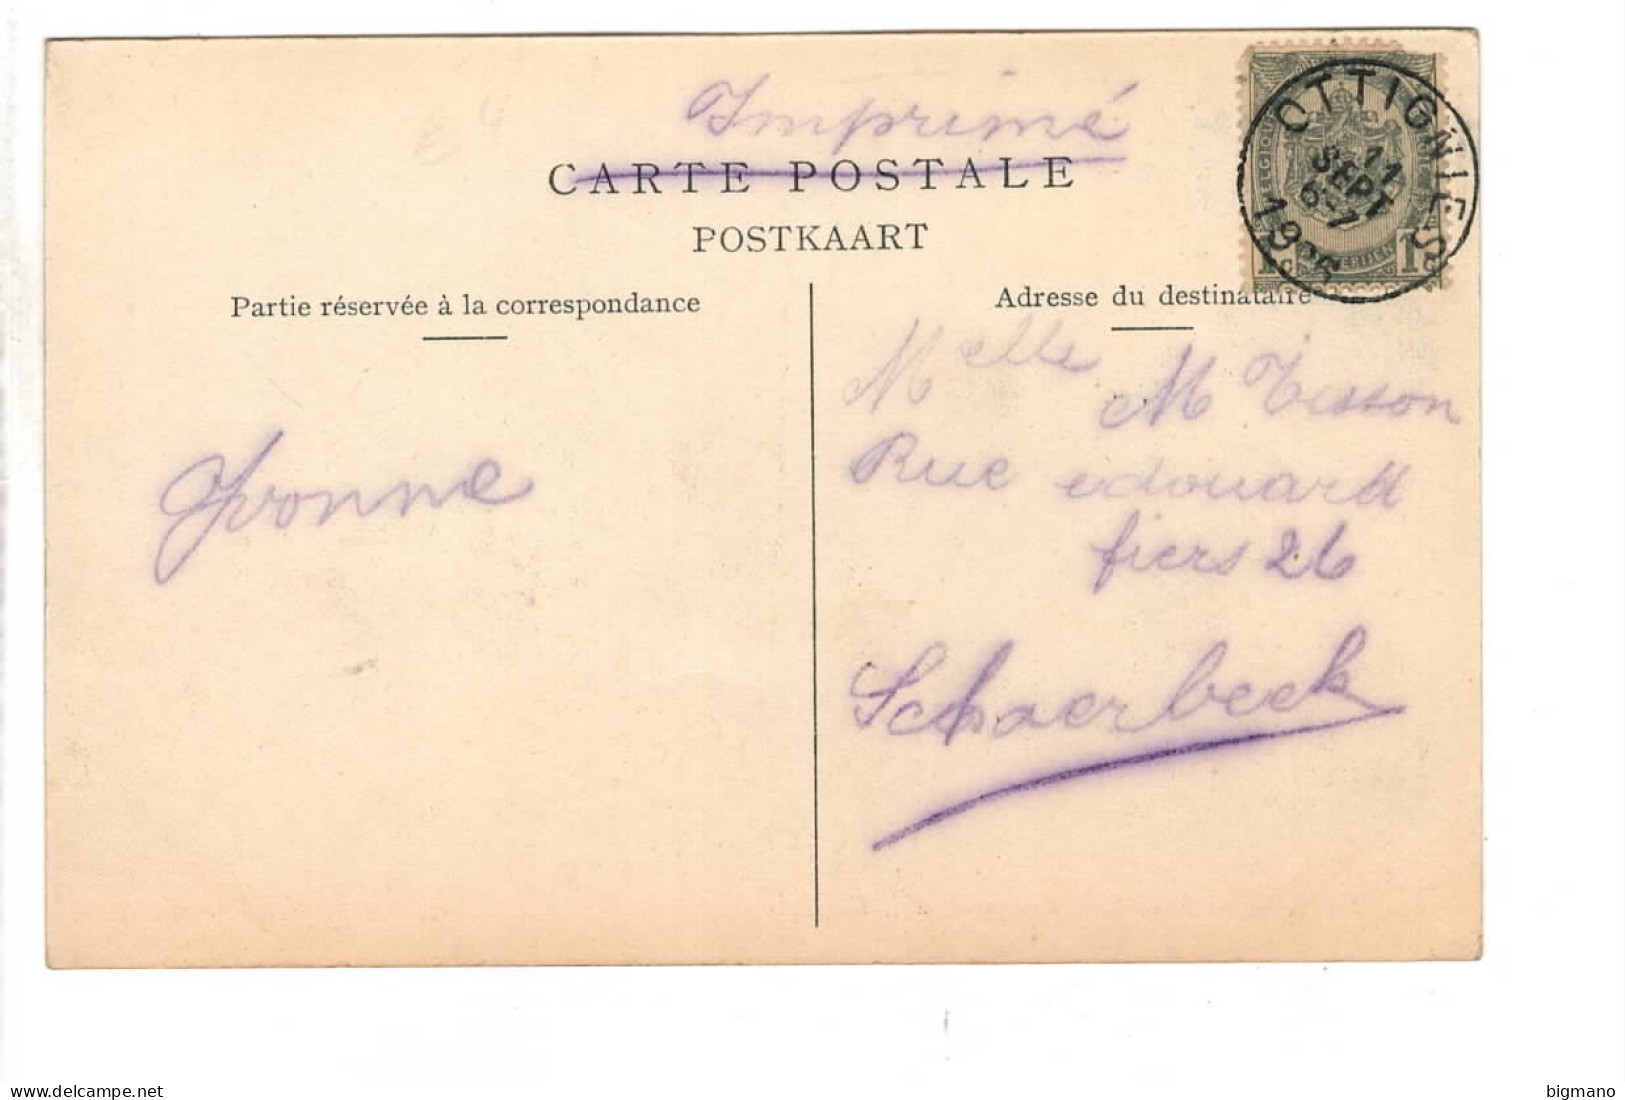 Imprimé
CARTE POSTALE
POSTKAART
OTTIGNIES
11
SEPT
6-7
BELGIQUE
1 1
Partie réservée à la correspondance
Adresse du destinataire
Yvonne
Melle M Tisson
Rue edouard
fiers 26
Schaerbeek
delcampe.net
bigmano